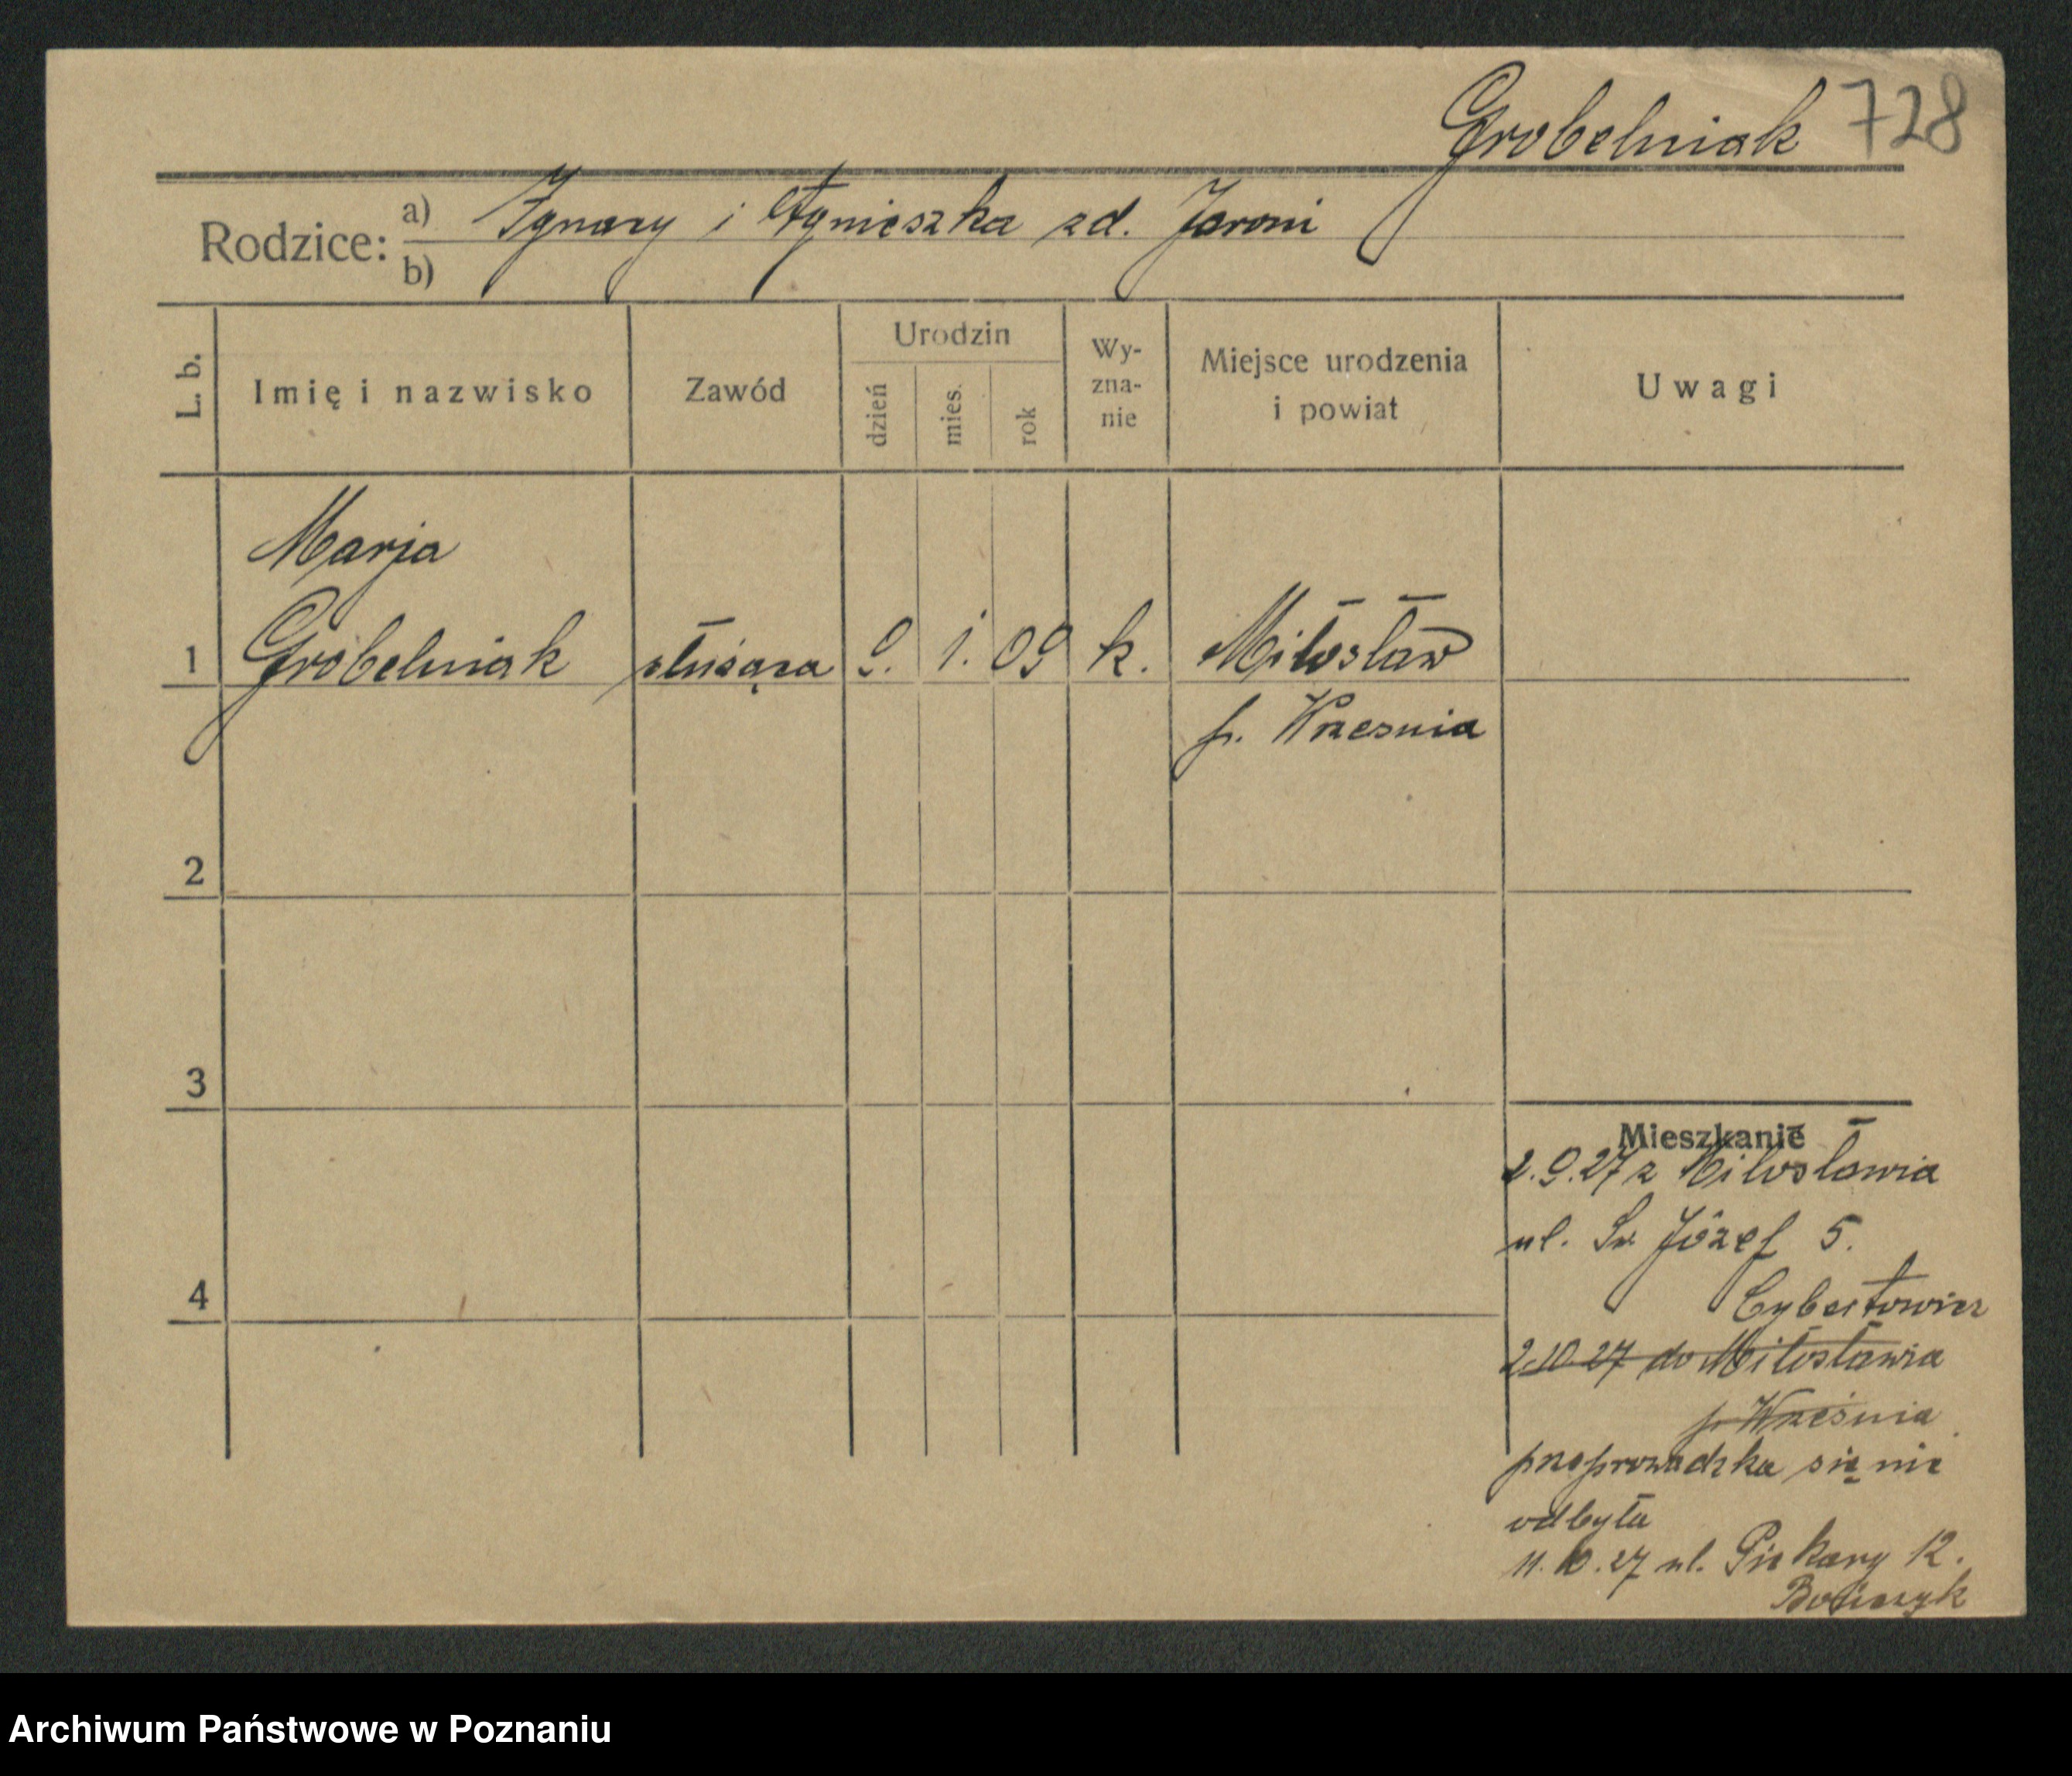 Grobelniak 728
Rodzice: a) Ignacy i Agnieszka zd. Jaroni
b)
L. b.
Imię i nazwisko
Zawód
Urodzin
dzień
mies.
rok
Wy-
zna-
nie
Miejsce urodzenia
i powiat
Uwagi
Marja
1 Grobelniak służąca 9. 1. 09 k. Miłosław
p. Wrzesnia
2
3
4
Mieszkanie
2.9.27 z Miłosławia
ul. Św Józef 5.
2.10.27 do Miłosławia
p. Września
przeprowadzka się nie
odbyła
11.10.27 ul. Piekary 12.
Archiwum Państwowe w Poznaniu